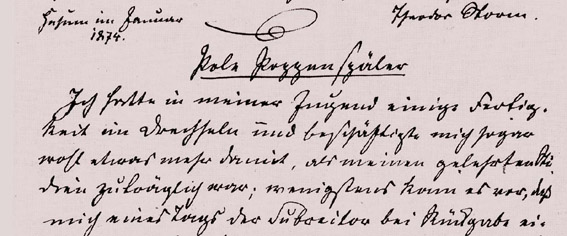 Husum im Januar
1874.
Theodor Storm.
Pole Poppenspäler
Ich hatte in meiner Jugend einige Fertig-
keit im Drechseln und beschäftigte mich sogar
wohl etwas mehr damit, als meinen gelehrten Stu
dien zuträglich war; wenigstens kam es vor, daß
mich eines Tags der Subrector bei Rückgabe ei-